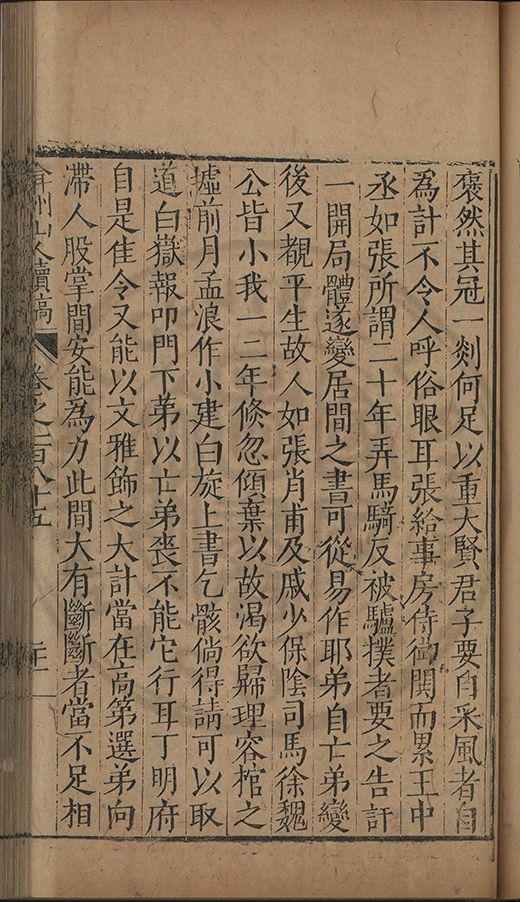 襃然其冠一剡何足以重大賢君子要自采風者自
為計不令人呼俗眼耳張給事房侍御閧而累王中
丞如張所謂二十年弄馬騎反被驢撲者要之告訐
一開局體遂變居間之書可從易作耶弟自亡弟變
後又覩平生故人如張肖甫及戚少保陰司馬徐魏
公皆小我一二年倐忽傾棄以故渴欲歸理容棺之
墟前月孟浪作小建白旋上書乞骸倘得請可以取
道白嶽報叩門下苐以亡弟喪不能它行耳丁明府
自是佳令又能以文雅飾之大計當在高第選弟向
滯人股掌間安能為力此間大有斷斷者當不足相
弇州山人續稿 卷之一百八十五